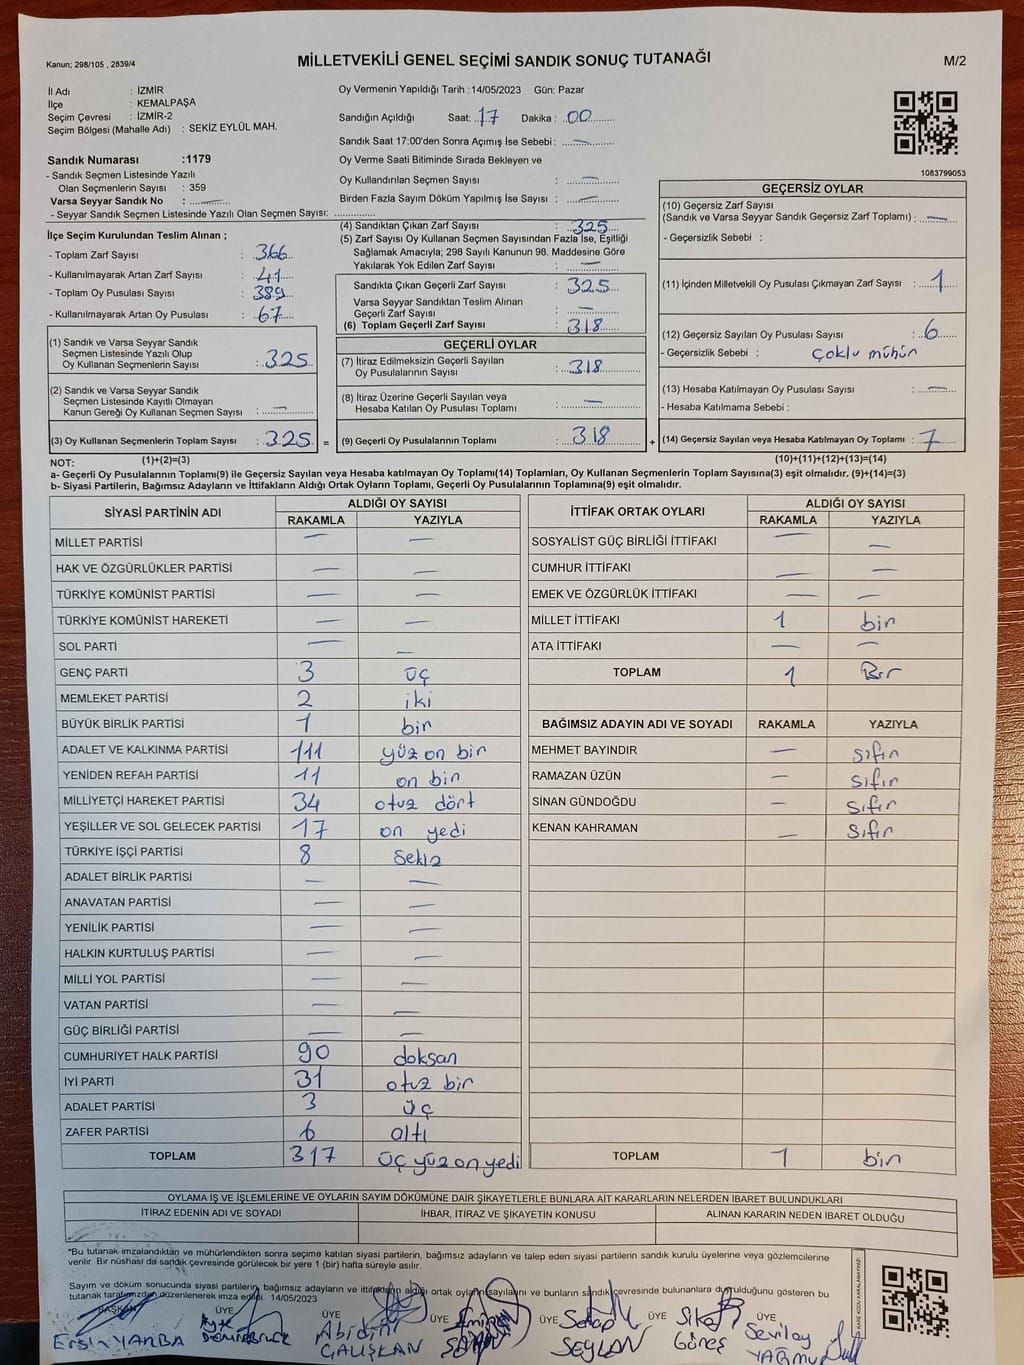 Kanun; 298/105 , 2839/4
MİLLETVEKİLİ GENEL SEÇİMİ SANDIK SONUÇ TUTANAĞI
M/2
İl Adı : İZMİR
İlçe : KEMALPAŞA
Seçim Çevresi : İZMİR-2
Seçim Bölgesi (Mahalle Adı) : SEKİZ EYLÜL MAH.
Sandık Numarası :1179
- Sandık Seçmen Listesinde Yazılı
Olan Seçmenlerin Sayısı : 359
Varsa Seyyar Sandık No :
- Seyyar Sandık Seçmen Listesinde Yazılı Olan Seçmen Sayısı:
Oy Vermenin Yapıldığı Tarih :14/05/2023 Gün: Pazar
Sandığın Açıldığı Saat: 17 Dakika : 00
Sandık Saat 17:00'den Sonra Açımış İse Sebebi : —
Oy Verme Saati Bitiminde Sırada Bekleyen ve
Oy Kullandırılan Seçmen Sayısı : —
Birden Fazla Sayım Döküm Yapılmış İse Sayısı : —
1083799053
İlçe Seçim Kurulundan Teslim Alınan ;
- Toplam Zarf Sayısı : 366
- Kullanılmayarak Artan Zarf Sayısı : 41
- Toplam Oy Pusulası Sayısı : 389
- Kullanılmayarak Artan Oy Pusulası : 67
(1) Sandık ve Varsa Seyyar Sandık
Seçmen Listesinde Yazılı Olup
Oy Kullanan Seçmenlerin Sayısı : 325
(2) Sandık ve Varsa Seyyar Sandık
Seçmen Listesinde Kayıtlı Olmayan
Kanun Gereği Oy Kullanan Seçmen Sayısı : —
(3) Oy Kullanan Seçmenlerin Toplam Sayısı : 325 =
(1)+(2)=(3)
(4) Sandıktan Çıkan Zarf Sayısı : 325
(5) Zarf Sayısı Oy Kullanan Seçmen Sayısından Fazla İse, Eşitliği
Sağlamak Amacıyla; 298 Sayılı Kanunun 98. Maddesine Göre
Yakılarak Yok Edilen Zarf Sayısı : —
Sandıkta Çıkan Geçerli Zarf Sayısı : 325
Varsa Seyyar Sandıktan Teslim Alınan
Geçerli Zarf Sayısı : —
(6) Toplam Geçerli Zarf Sayısı : 318
GEÇERLİ OYLAR
(7) İtiraz Edilmeksizin Geçerli Sayılan
Oy Pusulalarının Sayısı : 318
(8) İtiraz Üzerine Geçerli Sayılan veya
Hesaba Katılan Oy Pusulası Toplamı : —
(9) Geçerli Oy Pusulalarının Toplamı : 318 +
GEÇERSİZ OYLAR
(10) Geçersiz Zarf Sayısı
(Sandık ve Varsa Seyyar Sandık Geçersiz Zarf Toplamı) : —
- Geçersizlik Sebebi :
(11) İçinden Milletvekili Oy Pusulası Çıkmayan Zarf Sayısı : 1
(12) Geçersiz Sayılan Oy Pusulası Sayısı : 6
- Geçersizlik Sebebi : çoklu mühür
(13) Hesaba Katılmayan Oy Pusulası Sayısı : —
- Hesaba Katılmama Sebebi :
(14) Geçersiz Sayılan veya Hesaba Katılmayan Oy Toplamı : 7
(10)+(11)+(12)+(13)=(14)
NOT:
a- Geçerli Oy Pusulalarının Toplamı(9) ile Geçersiz Sayılan veya Hesaba katılmayan Oy Toplamı(14) Toplamları, Oy Kullanan Seçmenlerin Toplam Sayısına(3) eşit olmalıdır. (9)+(14)=(3)
b- Siyasi Partilerin, Bağımsız Adayların ve İttifakların Aldığı Ortak Oyların Toplamı, Geçerli Oy Pusulalarının Toplamına(9) eşit olmalıdır.
SİYASİ PARTİNİN ADI ALDIĞI OY SAYISI
RAKAMLA YAZIYLA
MİLLET PARTİSİ — —
HAK VE ÖZGÜRLÜKLER PARTİSİ — —
TÜRKİYE KOMÜNİST PARTİSİ — —
TÜRKİYE KOMÜNİST HAREKETİ — —
SOL PARTİ — —
GENÇ PARTİ 3 üç
MEMLEKET PARTİSİ 2 iki
BÜYÜK BİRLİK PARTİSİ 1 bir
ADALET VE KALKINMA PARTİSİ 111 yüz on bir
YENİDEN REFAH PARTİSİ 11 on bir
MİLLİYETÇİ HAREKET PARTİSİ 34 otuz dört
YEŞİLLER VE SOL GELECEK PARTİSİ 17 on yedi
TÜRKİYE İŞÇİ PARTİSİ 8 sekiz
ADALET BİRLİK PARTİSİ — —
ANAVATAN PARTİSİ — —
YENİLİK PARTİSİ — —
HALKIN KURTULUŞ PARTİSİ — —
MİLLİ YOL PARTİSİ — —
VATAN PARTİSİ — —
GÜÇ BİRLİĞİ PARTİSİ — —
CUMHURİYET HALK PARTİSİ 90 doksan
İYİ PARTİ 31 otuz bir
ADALET PARTİSİ 3 üç
ZAFER PARTİSİ 6 altı
TOPLAM 317 üç yüz on yedi
İTTİFAK ORTAK OYLARI ALDIĞI OY SAYISI
RAKAMLA YAZIYLA
SOSYALİST GÜÇ BİRLİĞİ İTTİFAKI — —
CUMHUR İTTİFAKI — —
EMEK VE ÖZGÜRLÜK İTTİFAKI — —
MİLLET İTTİFAKI 1 bir
ATA İTTİFAKI — —
TOPLAM 1 Bir
BAĞIMSIZ ADAYIN ADI VE SOYADI RAKAMLA YAZIYLA
MEHMET BAYINDIR — sıfır
RAMAZAN ÜZÜN — sıfır
SİNAN GÜNDOĞDU — sıfır
KENAN KAHRAMAN — sıfır
TOPLAM 1 bir
OYLAMA İŞ VE İŞLEMLERİNE VE OYLARIN SAYIM DÖKÜMÜNE DAİR ŞİKAYETLERLE BUNLARA AİT KARARLARIN NELERDEN İBARET BULUNDUKLARI
İTİRAZ EDENİN ADI VE SOYADI İHBAR, İTİRAZ VE ŞİKAYETİN KONUSU ALINAN KARARIN NEDEN İBARET OLDUĞU
*Bu tutanak imzalandıktan ve mühürlendikten sonra seçime katılan siyasi partilerin, bağımsız adayların ve talep eden siyasi partilerin sandık kurulu üyelerine veya gözlemcilerine
verilir. Bir nüshası da sandık çevresinde görülecek bir yere 1 (bir) hafta süreyle asılır.
Sayım ve döküm sonucunda siyasi partilerin, bağımsız adayların ve ittifakların aldığı ortak oyların sayılarını ve bunların sandık çevresinde bulunanlara duyrulduğunu gösteren bu
tutanak tarafımızdan düzenlenerek imza edildi. 14/05/2023
BAŞKAN ÜYE ÜYE ÜYE ÜYE ÜYE ÜYE
Ersin YAMBA
Abidin ÇALIŞKAN
Emine
SEYLAN
Güneş
Sevilay YAĞMUR
KARE KODU KARALAMAYINIZ!